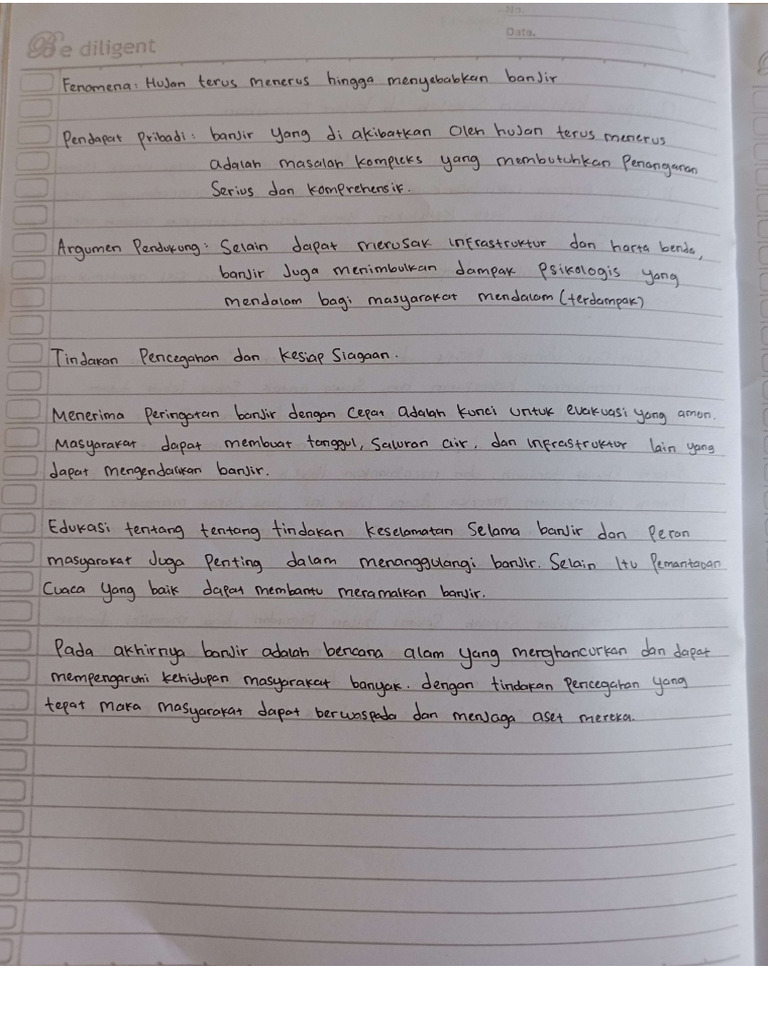 No.
Be diligent
Date.
Fenomena: Hujan terus menerus hingga menyebabkan banjir
Pendapat Pribadi: banjir yang di akibatkan Oleh hujan terus menerus
adalah masalah kompleks yang membutuhkan Penanganan
Serius dan komprehensif.
Argumen Pendukung: Selain dapat merusak infrastruktur dan harta benda,
banjir Juga menimbulkan dampak Psikologis yang
mendalam bagi masyarakat mendalam (terdampak)
Tindakan Pencegahan dan Kesiap Siagaan.
Menerima Peringatan banjir dengan Cepat adalah kunci untuk evakuasi yang aman.
Masyarakat dapat membuat tanggul, Saluran air, dan infrastruktur lain yang
dapat mengendalikan banjir.
Edukasi tentang tentang tindakan keselamatan Selama banjir dan Peran
masyarakat Juga Penting dalam menanggulangi banjir. Selain Itu Pemantauan
Cuaca Yang baik dapat membantu meramalkan banjir.
Pada akhirnya banjir adalah bencana alam yang menghancurkan dan dapat
mempengaruhi kehidupan masyarakat banyak. dengan tindakan Pencegahan yang
tepat maka masyarakat dapat berwaspada dan menjaga aset mereka.